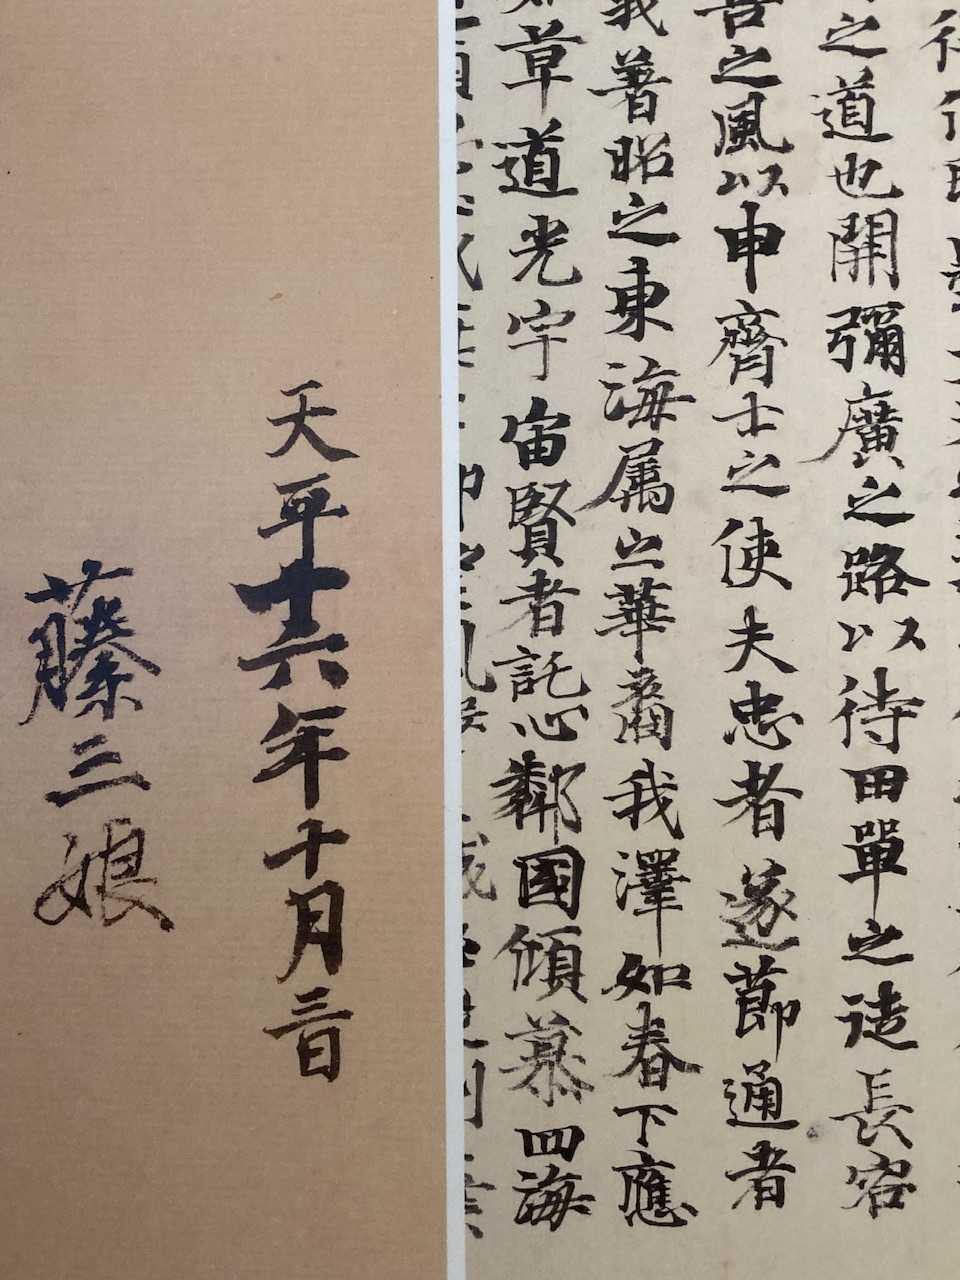 之道也開彌廣之路以待田單之徒長容
善之風以申齊士之使夫忠者遂莭通者
我著昭之東海属之華裔我澤如春下應
如草道光宇宙賢者託心鄰國傾慕四海
天平十六年十月三日
藤三娘